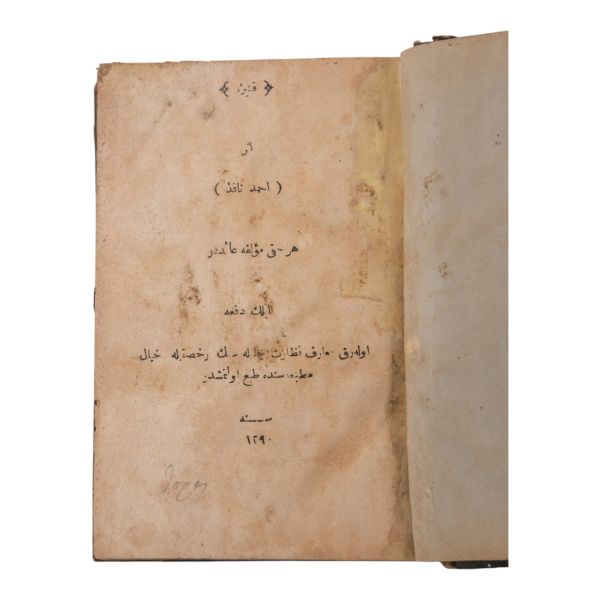 ﴿ قنیزه ﴾
اثر
( احمد نافذ )
هر حق مؤلفه عائددر
ایلك دفعه
اوله‌رق معارف نظارت جلیله سنك رخصتیله خیال
مطبعه سنده طبع اولنمشدر
سنه
١٢٩٠